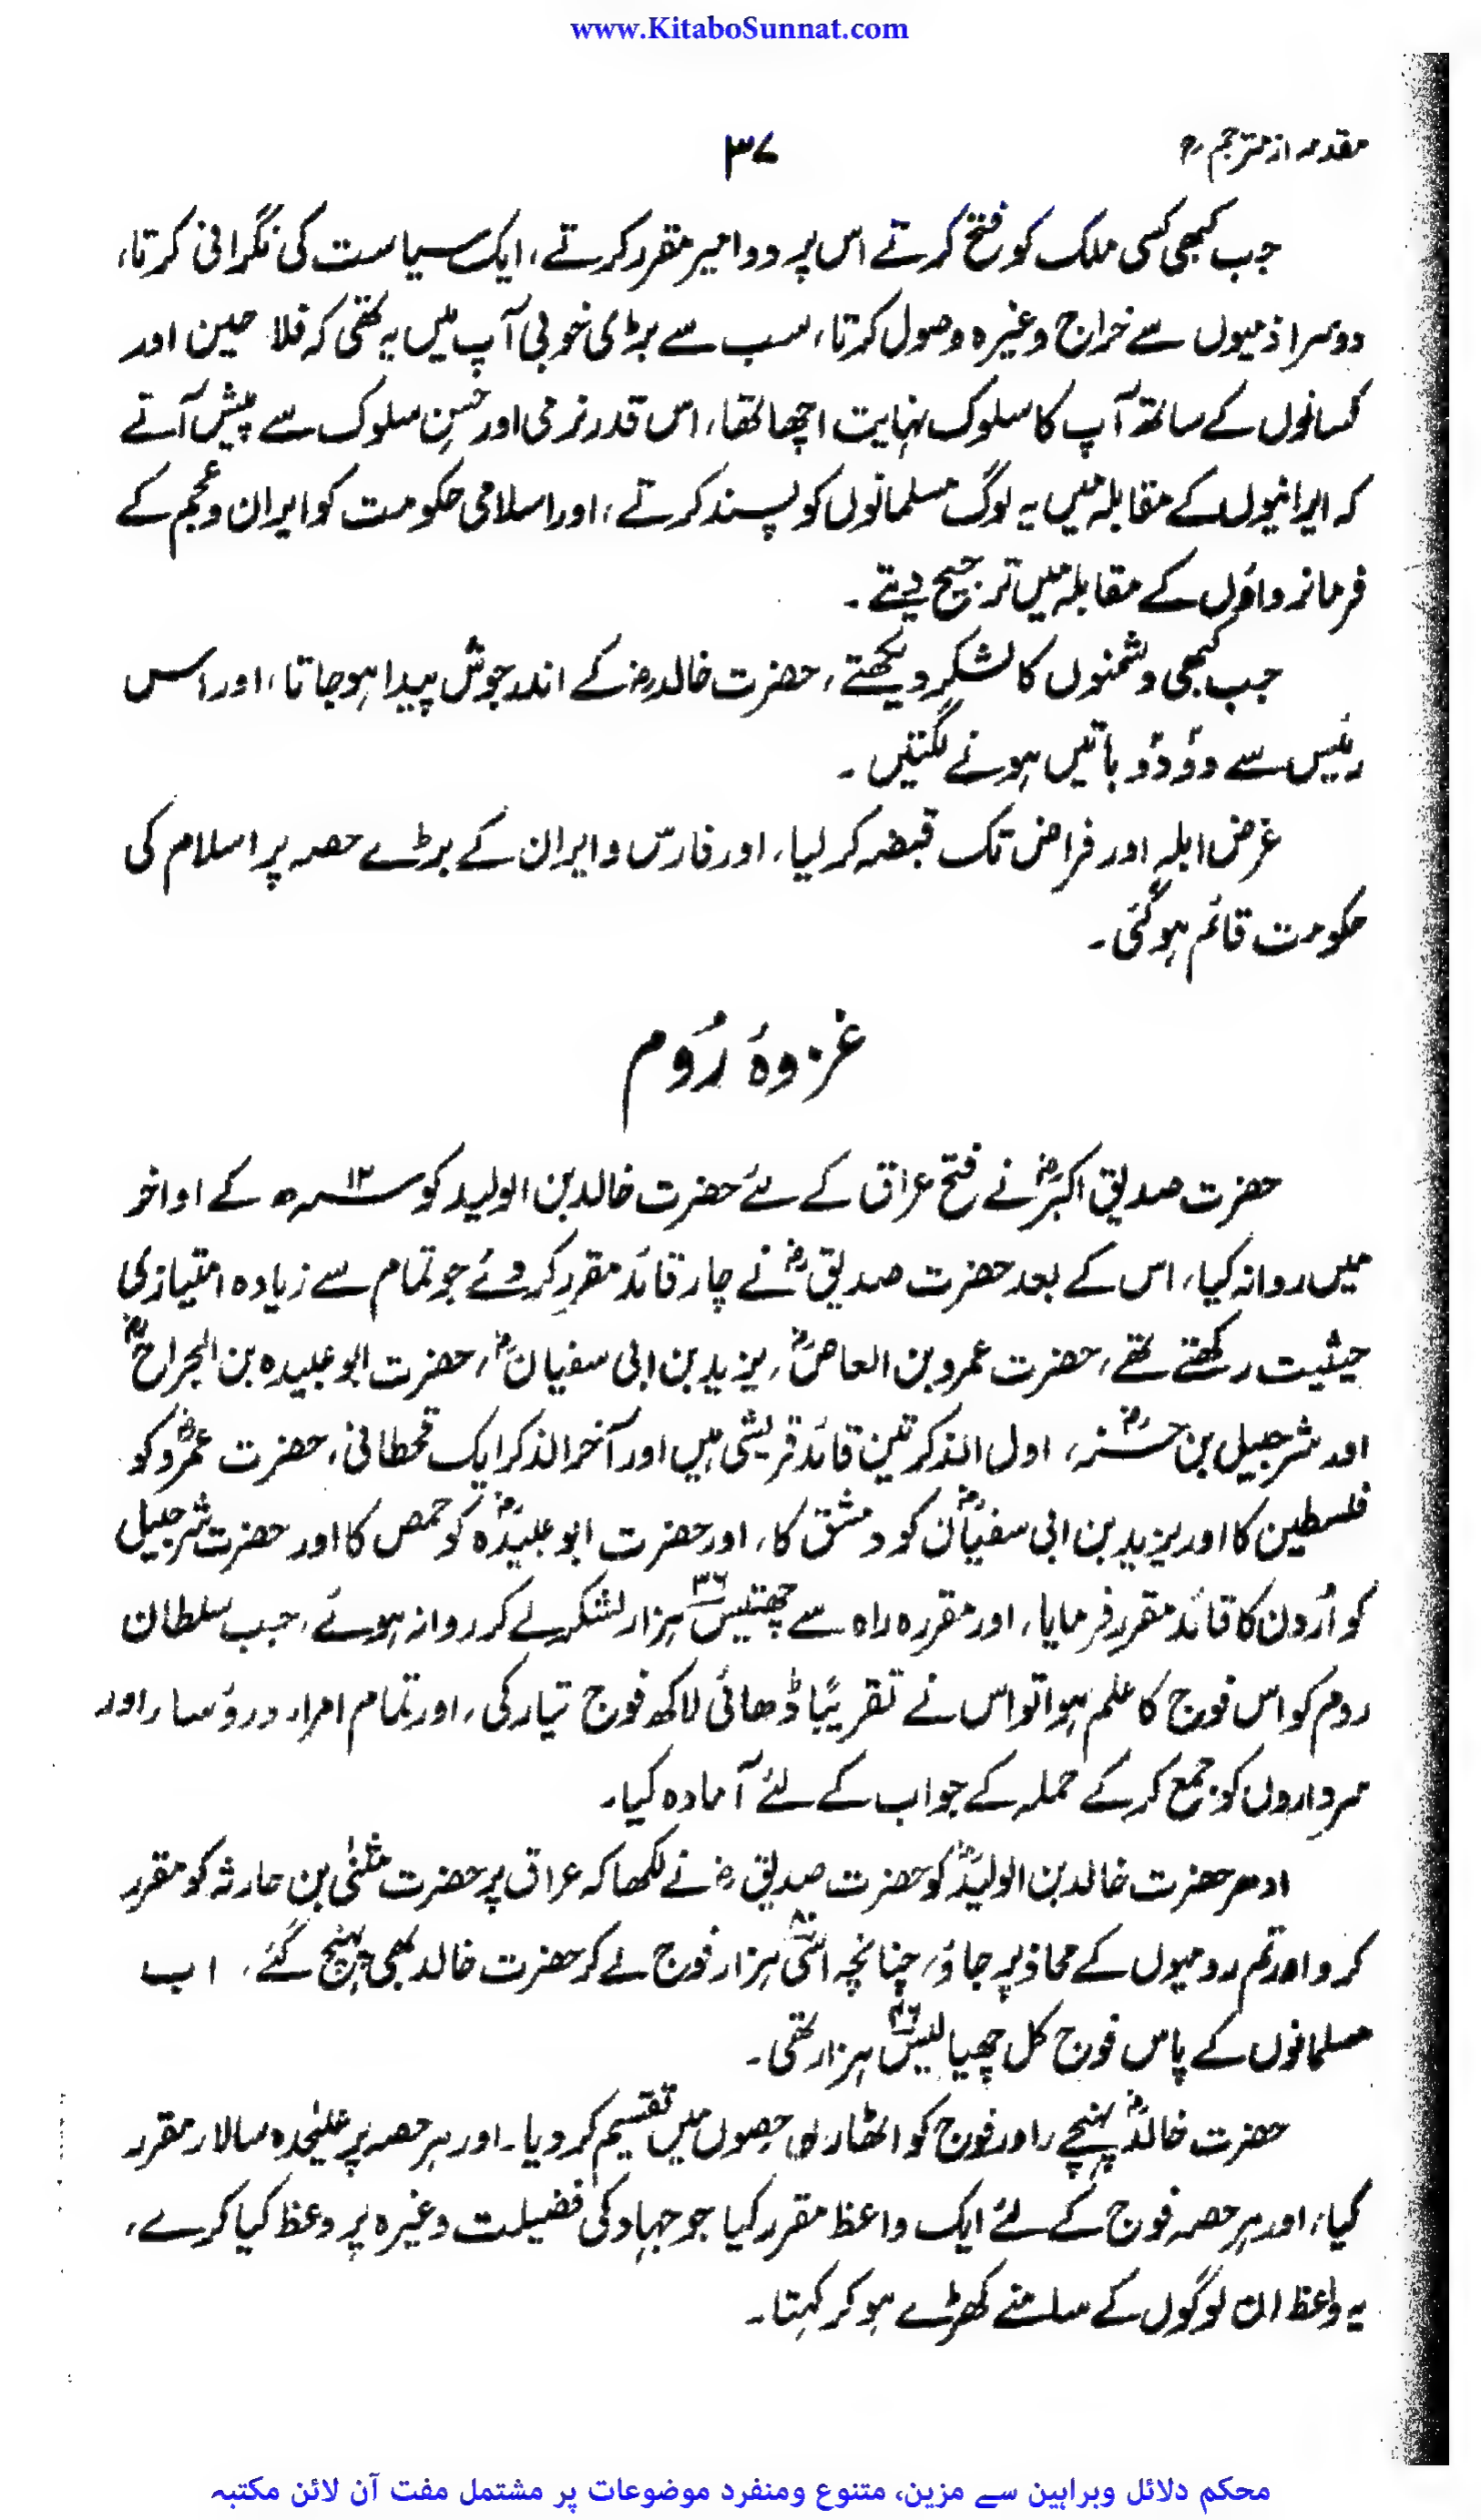 www.KitaboSunnat.com
مقدمہ از مترجم ؒ
۳۷
جب کبھی کسی ملک کو فتح کرتے اس پر دو امیر مقرر کرتے، ایک سیاست کی نگرانی کرتا،
دوسرا ذمیوں سے خراج وغیرہ وصول کرتا، سب سے بڑی خوبی آپ میں یہ تھی کہ فلاحین اور
کسانوں کے ساتھ آپ کا سلوک نہایت اچھا تھا، اس قدر نرمی اور حُسنِ سلوک سے پیش آتے
کہ ایرانیوں کے مقابلہ میں یہ لوگ مسلمانوں کو پسند کرتے، اور اسلامی حکومت کو ایران و عجم کے
فرمانرواؤں کے مقابلہ میں ترجیح دیتے ۔
جب کبھی دشمنوں کا لشکر دیکھتے، حضرت خالدرؓ کے اندر جوش پیدا ہو جاتا، اور اس
رئیس سے دوؔ دوؔ باتیں ہونے لگتیں ۔
غرض ابلہ اور فراض تک قبضہ کر لیا، اور فارس و ایران کے بڑے حصہ پر اسلام کی
حکومت قائم ہو گئی ۔
غزوۂ رُوم
حضرت صدیق اکبرؓ نے فتح عراق کے لئے حضرت خالد بن الولید کو ۱۲سنہ ھ کے اواخر
میں روانہ کیا، اس کے بعد حضرت صدیقؓ نے چار قائد مقرر کر دئے جو تمام سے زیادہ امتیازی
حیثیت رکھتے تھے، حضرت عمرو بن العاصؓ، یزید بن ابی سفیانؓ، حضرت ابو عبیدہ بن الجراحؓ
اور شرجیل بن حسنہؓ، اول الذکر تین قائد قریشی ہیں اور آخر الذکر ایک قحطانی، حضرت عمروؓ کو
فلسطین کا اور یزید بن ابی سفیانؓ کو دمشق کا، اور حضرت ابو عبیدہؓ کو حمص کا اور حضرت شرجیل
کو اُردن کا قائد مقرر فرمایا، اور مقررہ راہ سے چھتیس ۳۶ ہزار لشکر لے کر روانہ ہوئے، جب سلطان
روم کو اس فوج کا علم ہوا تو اس نے تقریبًا ڈھائی لاکھ فوج تیار کی، اور تمام امراء و رؤساء اور
سرداروں کو جمع کر کے حملہ کے جواب کے لئے آمادہ کیا۔
ادھر حضرت خالد بن الولیدؓ کو حضرت صدیق رضؓ نے لکھا کہ عراق پر حضرت مثنیٰ بن حارثہ کو مقرر
کرو اور تم رومیوں کے محاذ پر جاؤ، چنانچہ اسّی ۸۰ ہزار فوج لے کر حضرت خالد بھی پہنچ گئے، اب
مسلمانوں کے پاس فوج کل چھیالیس ۴۶ ہزار تھی ۔
حضرت خالدؓ پہنچے، اور فوج کو اٹھارہ حِصوں میں تقسیم کر دیا۔ اور ہر حصہ پر علیٰحدہ سالار مقرر
کیا، اور ہر حصہ فوج کے لئے ایک واعظ مقرر کیا جو جہاد کی فضیلت وغیرہ پر وعظ کیا کرے،
یہ واعظ ان لوگوں کے سامنے کھڑے ہو کر کہتا۔
محکم دلائل وبراہین سے مزین، متنوع ومنفرد موضوعات پر مشتمل مفت آن لائن مکتبہ